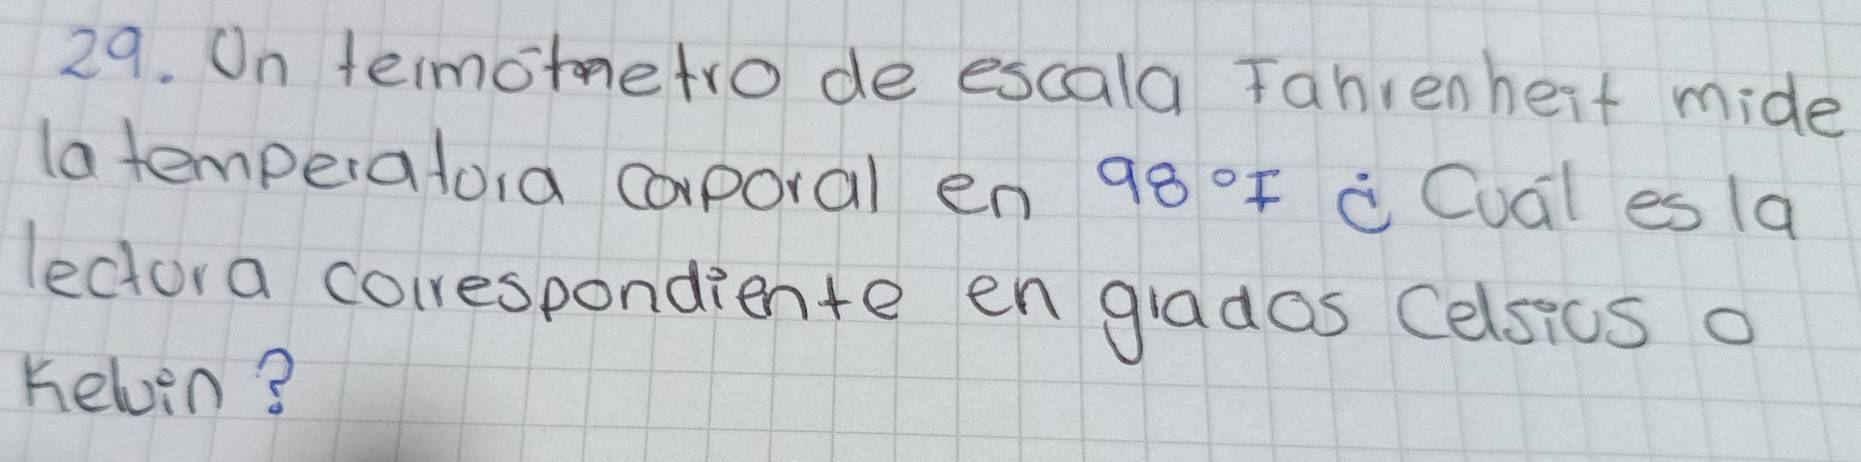 29. Un termómetro de escala Fahrenheit mide
la temperatura corporal en 98°F ¿Cuál es la
lectura correspondiente en grados Celsius o
Kelvin?